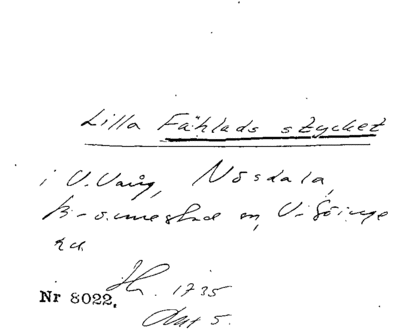 Lilla Fählads stycket
i V. Vång, Nösdala,
Brönnestad sn, V. Göinge
hd.
Jb. 1735
Nr 8022.
Akt 5.